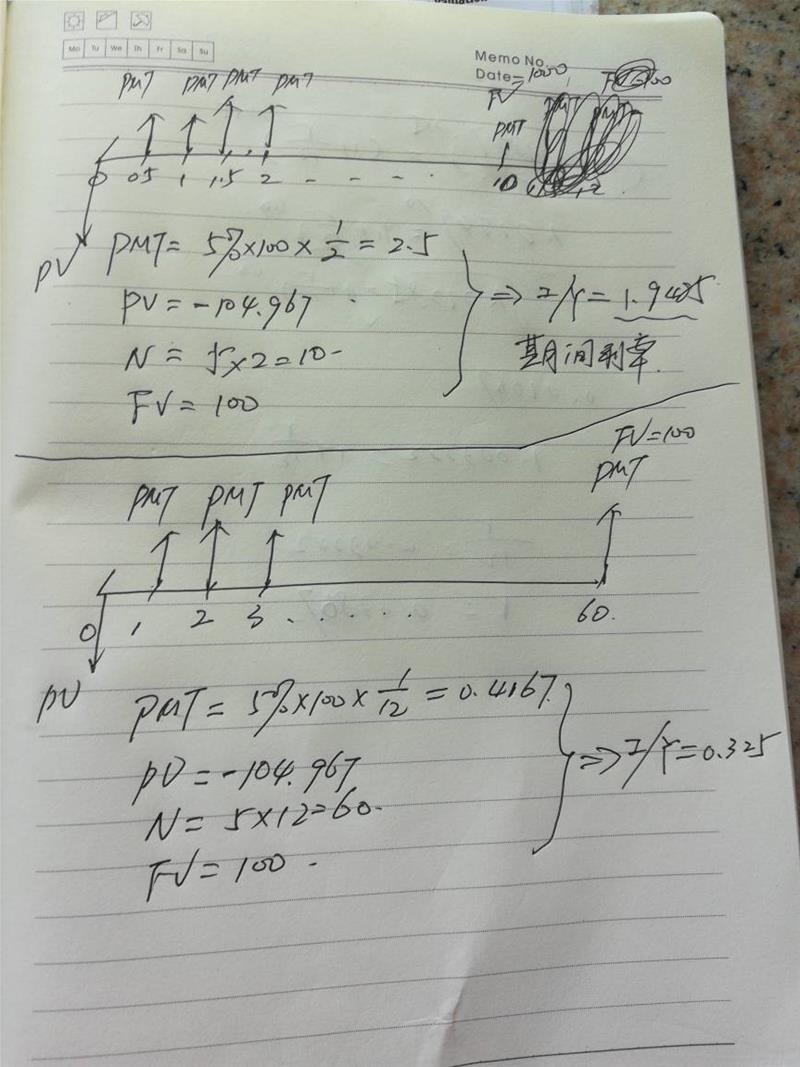 Mo Tu We Th Fr Sa Su
Memo No.
Date
PMT PMT PMT PMT
FV=1000
PMT
0 0.5 1 1.5 2 - - - . 10
PV
PMT = 5%×100×1/2 = 2.5
PV = -104.967
N = 5×2=10
FV = 100
⇒ I/Y = 1.9485
期间利率.
FV=100
PMT PMT PMT PMT
0 1 2 3 . . . . 60.
PV
PMT = 5%×100×1/12 = 0.4167
PV = -104.967
N = 5×12=60.
FV = 100
⇒ I/Y=0.325